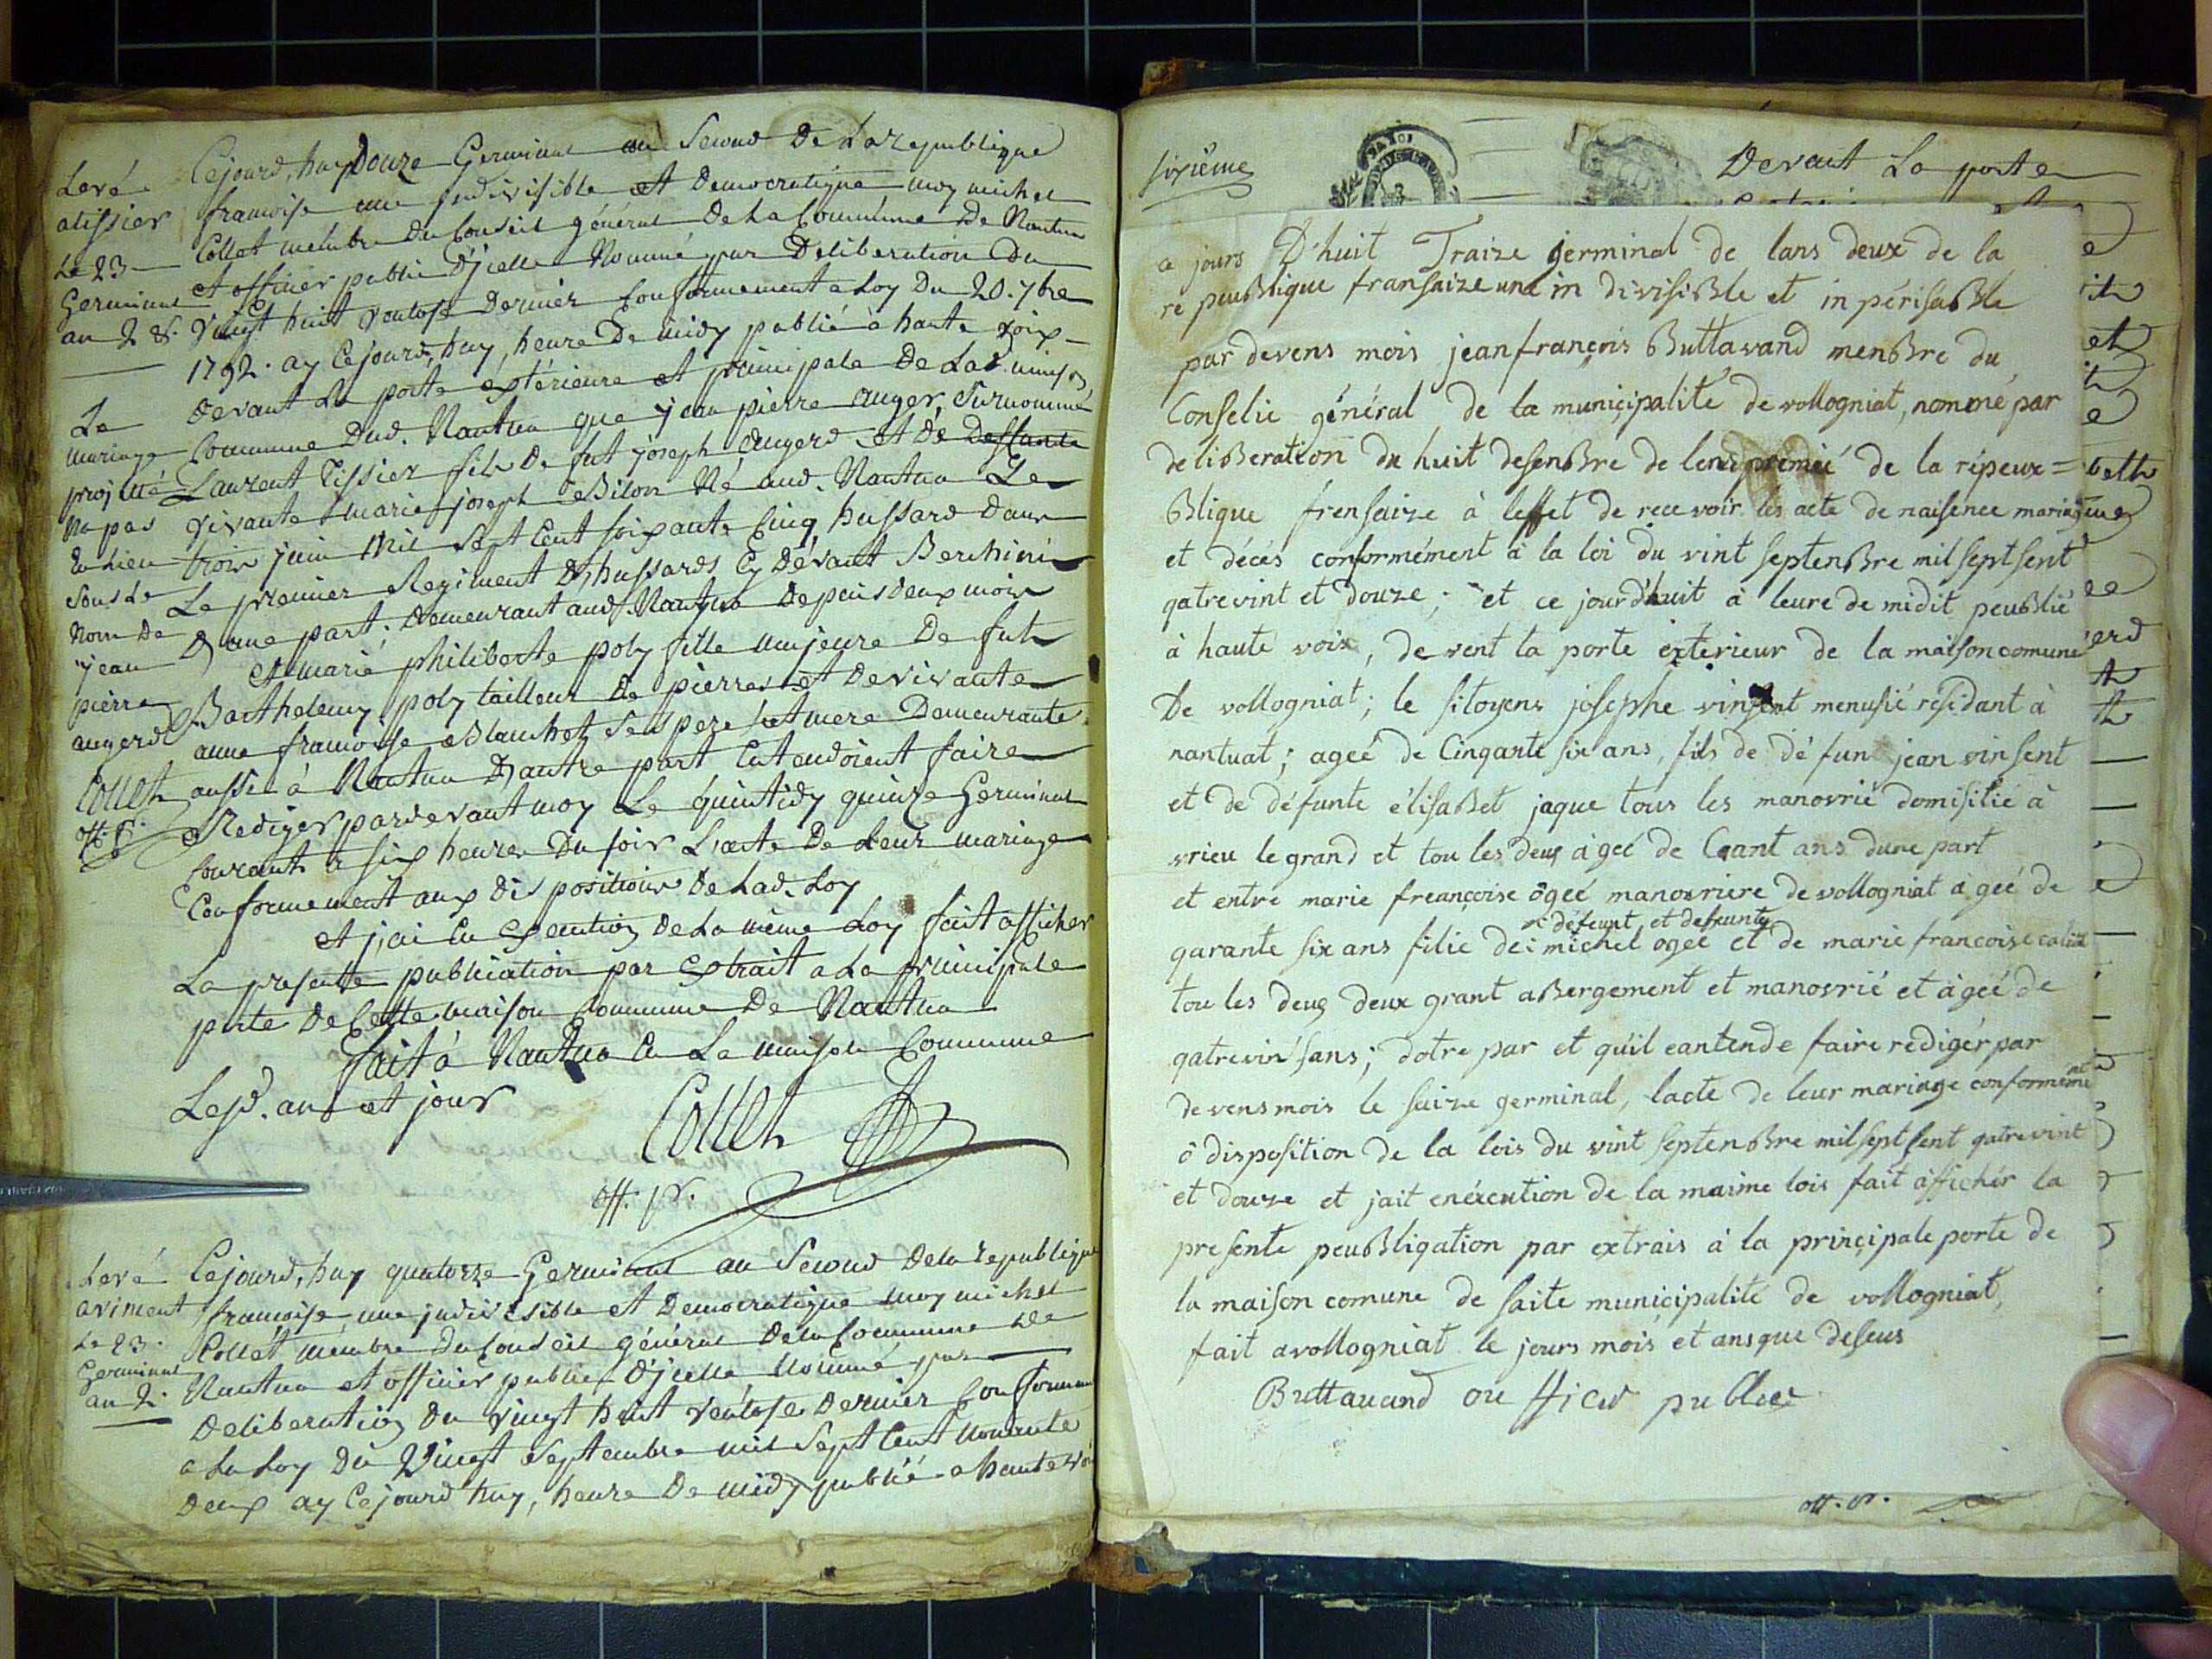 Levé
atissier
Le 23
Germinal
an 2 &.
Le
mariage
projetté
Na pas
Eu lieu
sous Le
Nom de
jean
pierre
augerd
Collet
off. p.
Cejourd'huy Douze Germinal an Second De La republique
francoise une jndivisible et Democratique moy michel
Collet membre du Conseil général De La Commune de Nantua
et officier public d'jcelle Nommé par Deliberation du
vingt huit ventose Dernier Conformement a Loy Du 20. 7bre
1792. ay Cejourd'huy, heure De midy publié à haute voix
devant La porte éxtérieure et principale De La maison
Commune Dud. Nantua que jean pierre auger, surnommé
Laurent Tissier fils De fut joseph augerd et de deffunte
vivante marie joseph Bilon Né aud. Nantua Le
trois juin mil sept Cent soixante Cinq, hussard dans
Le premier Regiment D'hussards Cy devant Berchini
D'une part. demeurant aud. Nantua depuis deux mois
et marie philiberte poly fille majeure De fut
Barthelemy poly tailleur De pierres et De vivante
anne francoise Blanchet ses pere et mere Demeurante
aussi à Nantua D'autre part Entendoient faire
Rediger pardevant moy Le quintidy quinze Germinal
Courant à six heures Du soir L'acte De Leur mariage
Conformement aux dispositions De Lad. Loy
et j'ai En Execution De La même Loy fait afficher
La presente publication par Extrait a La principale
porte De Cette maison Commune De Nantua
fait à Nantua En La maison Commune
Lesd. an et jour
Collet
off. p.
Levé
aviment
Le 23.
Germinal
an 2.
Cejourd'huy quatorze Germinal an Second De la republique
francoise une jndivisible et Democratique moy michel
Collet membre du Conseil général De la Commune de
Nantua et officier public d'jcelle Nommé par
deliberation du vingt huit ventose dernier Conformement
a La Loy du Vingt septembre mil sept Cent Nonante
deux ay Cejourd'huy, heure De midy publié a haute voix
sixième
Devant La porte
a jours D'huit Traize germinal de lans deux de la
repeublique fransaize une in divisible et in périsable
par devens mois jean françois Buttavand menbre du
Conselie général de la municipalité de vollogniat, nommé par
deliberation du huit desenbre de lens premié de la répeux=
blique frensaize à leffet de recevoir les acte de naisence mariage
et décés conformément à la loi du vint septenbre mil sept sent
qatrevint et douze; et ce jourd'huit à leure de midit peublié
à haute voix, de vent la porte exterieur de la maison comune
De vollogniat; le sitoyens josephe vinsent menusié résidant à
nantuat; ageé de Cinqante six ans, fils de défun jean vinsent
et de défunte élisabet jaque tous les manovrié domisilié à
vrieu le grand et tou les deux ageé de Cgant ans dune part
et entre marie freançoise ôgeé manovriere de vollogniat ageé de
défeunt et defeunte
qarante six ans filie de michel ogeé et de marie francoise
tou les deux deux grant abergement et manovrié et àgeé de
qatrevin sans; dotre par et quil eantende faire redigér par
devens mois le saize germinal, lacte de leur mariage conformément
ô disposition de la lois du vint septenbre mil sept sent qatrevint
et douze et jait enéxcution de la maime lois fait àffichér la
presente peubligation par extrais à la principale porte de
la maison comune de saite municipalité de vollogniat,
fait avollogniat le jours mois et ans que deseus
Buttavand ou fficié publice
off. p.